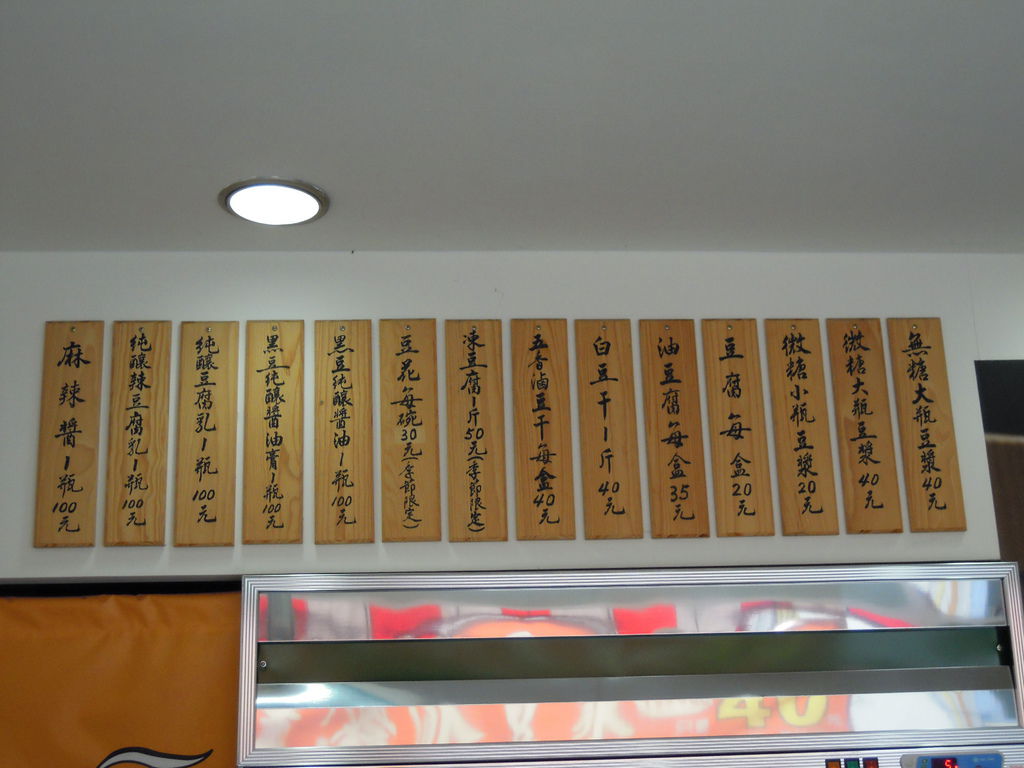 無糖大瓶豆漿40元
微糖大瓶豆漿40元
微糖小瓶豆漿20元
豆腐每盒20元
油豆腐每盒35元
白豆干1斤40元
五香滷豆干每盒40元
凍豆腐1斤50元(季節限定)
豆花每碗30元(季節限定)
黑豆純釀醬油1瓶100元
黑豆純釀醬油膏1瓶100元
純釀豆腐乳1瓶100元
純釀辣豆腐乳1瓶100元
麻辣醬1瓶100元
40